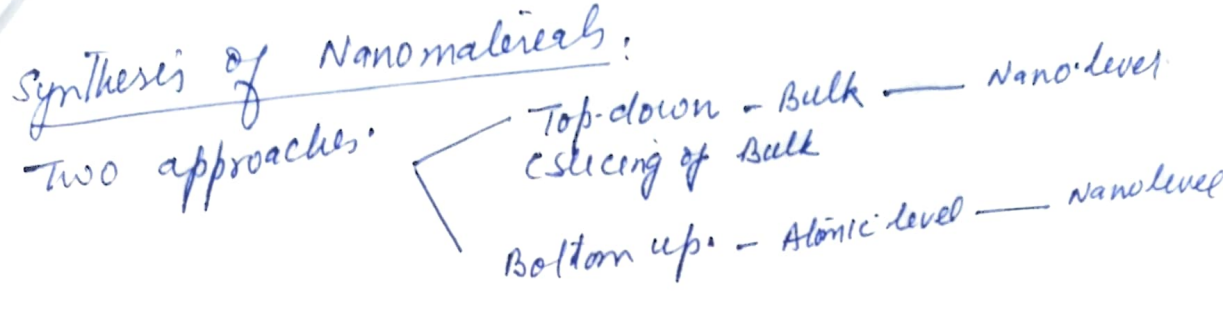 Synthesis of Nanomaterials:
Two approaches.
Top-down - Bulk — Nano level
(slicing of Bulk
Bottom up. - Atomic level — Nano level